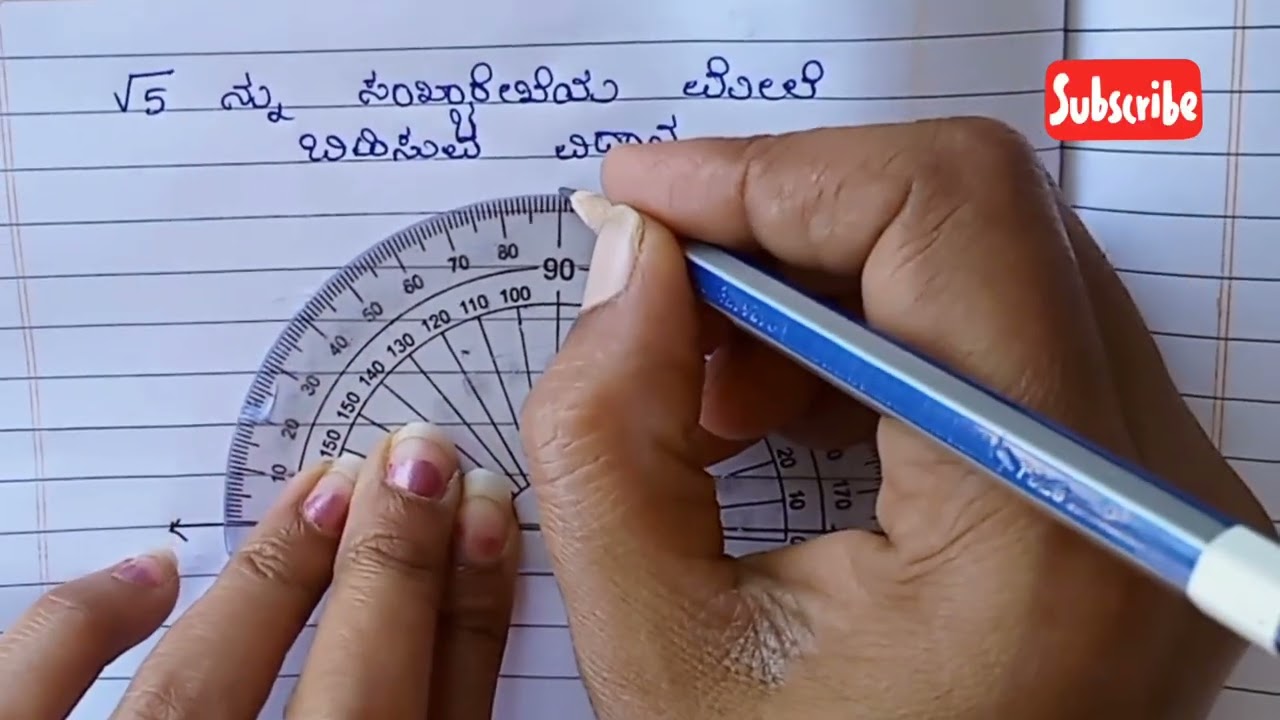 √5 ನ್ನು ಸಂಖ್ಯಾರೇಖೆಯ ಮೇಲೆ
ಬಿಡಿಸುವ ವಿಧಾನ
Subscribe
80
70
60
50
40
30
20
10
90
100
110
120
130
140
150
150
20
10
0
170